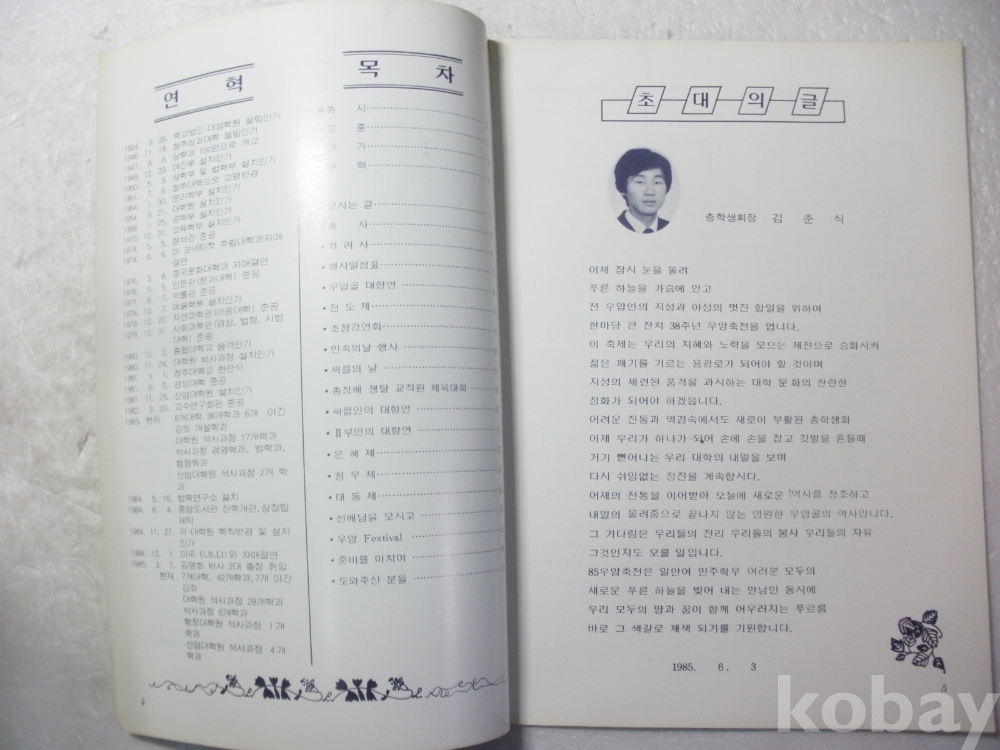 연 혁
1924. 3. 26. 학교법인 대성학원 설립인가
1946. 11. 18. 청주상과대학 설립인가
1947. 6. 6. 상학과 100명으로 개교
1949. 12. 29. 야간부 설치인가
5. 3. 상학부 및 법학부 설치인가
7. 6. 청주대학으로 교명변경
1. 30. 문리학부 설치인가
3. 21. 대학원 설치인가
1. 25. 공학부 설치인가
12. 31. 교육학부 설치인가
1974. 5. 5. 청석관 준공
1974. 6. 6. 미 코네티컷 주립대학과 자매
결연
1976. 3. 8. 중국문화대학과 자매결연
5. 5. 인문관(문과대학) 준공
6. 7. 박물관 준공
10. 7. 예술학부 설치인가
1978. 12. 22. 자연과학관(이공대학) 준공
1979. 12. 31. 사회과학관(경상, 법정, 사범
대학) 준공
1980. 10. 2. 종합대학교 승격인가
1980. 11. 24. 대학원 박사과정 설치인가
1981. 3. 1. 청주대학교 현판식
1981. 6. 5. 경상대학 준공
1981. 11. 25. 산업대학원 설치인가
1982. 3. 20. 교수연구회관 준공
1983. 현재 6개대학 38개학과 6개 야간
강좌 개설학과
대학원 석사과정 17개학과
박사과정 경영학과, 법학과,
행정학과
산업대학원 석사과정 2개 학
과
1984. 5. 16. 법학연구소 설치
1984. 6. 4. 중앙도서관 신축개관, 상징탑
제막
1984. 11. 27. 각 대학원 학칙변경 및 설치
인가
1984. 12. 1. 미국 U.S.I.U와 자매결연
1985. 3. 1. 김명회 박사 2대 총장 취임
현재 7개대학, 42개학과, 7개 야간
강좌
대학원 석사과정 28개학과
박사과정 6개학과
행정대학원 석사과정 1개
학과
산업대학원 석사과정 4개
학과
4
목 차
시
교 훈
교 가
연 혁
모시는 글
축 사
•격 려 사
•행사일정표
•우암골 대향연
•전 도 제
•초청강연회
•민속의날 행사
•써클의 날
•총장배 쟁탈 교직원 체육대회
•써클인의 대향연
•Ⅱ부인의 대향연
•은 혜 제
•청 무 제
•대 동 제
•선배님을 모시고
•우암 Festival
•준비를 마치며
•도와주신 분들
초 대 의 글
총학생회장 김 춘 식
이제 잠시 눈을 돌려
푸른 하늘을 가슴에 안고
전 우암인의 지성과 야성의 멋진 합일을 위하여
한마당 큰 잔치 38주년 우암축전을 엽니다.
이 축제는 우리의 지혜와 노력을 모으는 제전으로 승화시켜
젊은 패기를 기르는 용광로가 되어야 할 것이며
지성의 세련된 품격을 과시하는 대학 문화의 찬란한
정화가 되어야 하겠읍니다.
어려운 진통과 역경속에서도 새로이 부활된 총학생회
이제 우리가 하나가 되어 손에 손을 잡고 깃발을 흔들때
거기 뻗어나는 우리 대학의 내일을 보며
다시 쉬임없는 정진을 계속합시다.
어제의 전통을 이어받아 오늘에 새로운 역사를 창조하고
내일의 물려줌으로 끝나지 않는 영원한 우암골의 역사입니다.
그 기다림은 우리들의 진리 우리들의 봉사 우리들의 자유
그것인지도 모를 일입니다.
85우암축전은 일만여 민주학우 여러분 모두의
새로운 푸른 하늘을 빚어 내는 만남인 동시에
우리 모두의 땀과 꿈이 함께 어우러지는 푸르름
바로 그 색깔로 채색 되기를 기원합니다.
1985. 6. 3
5
kobay